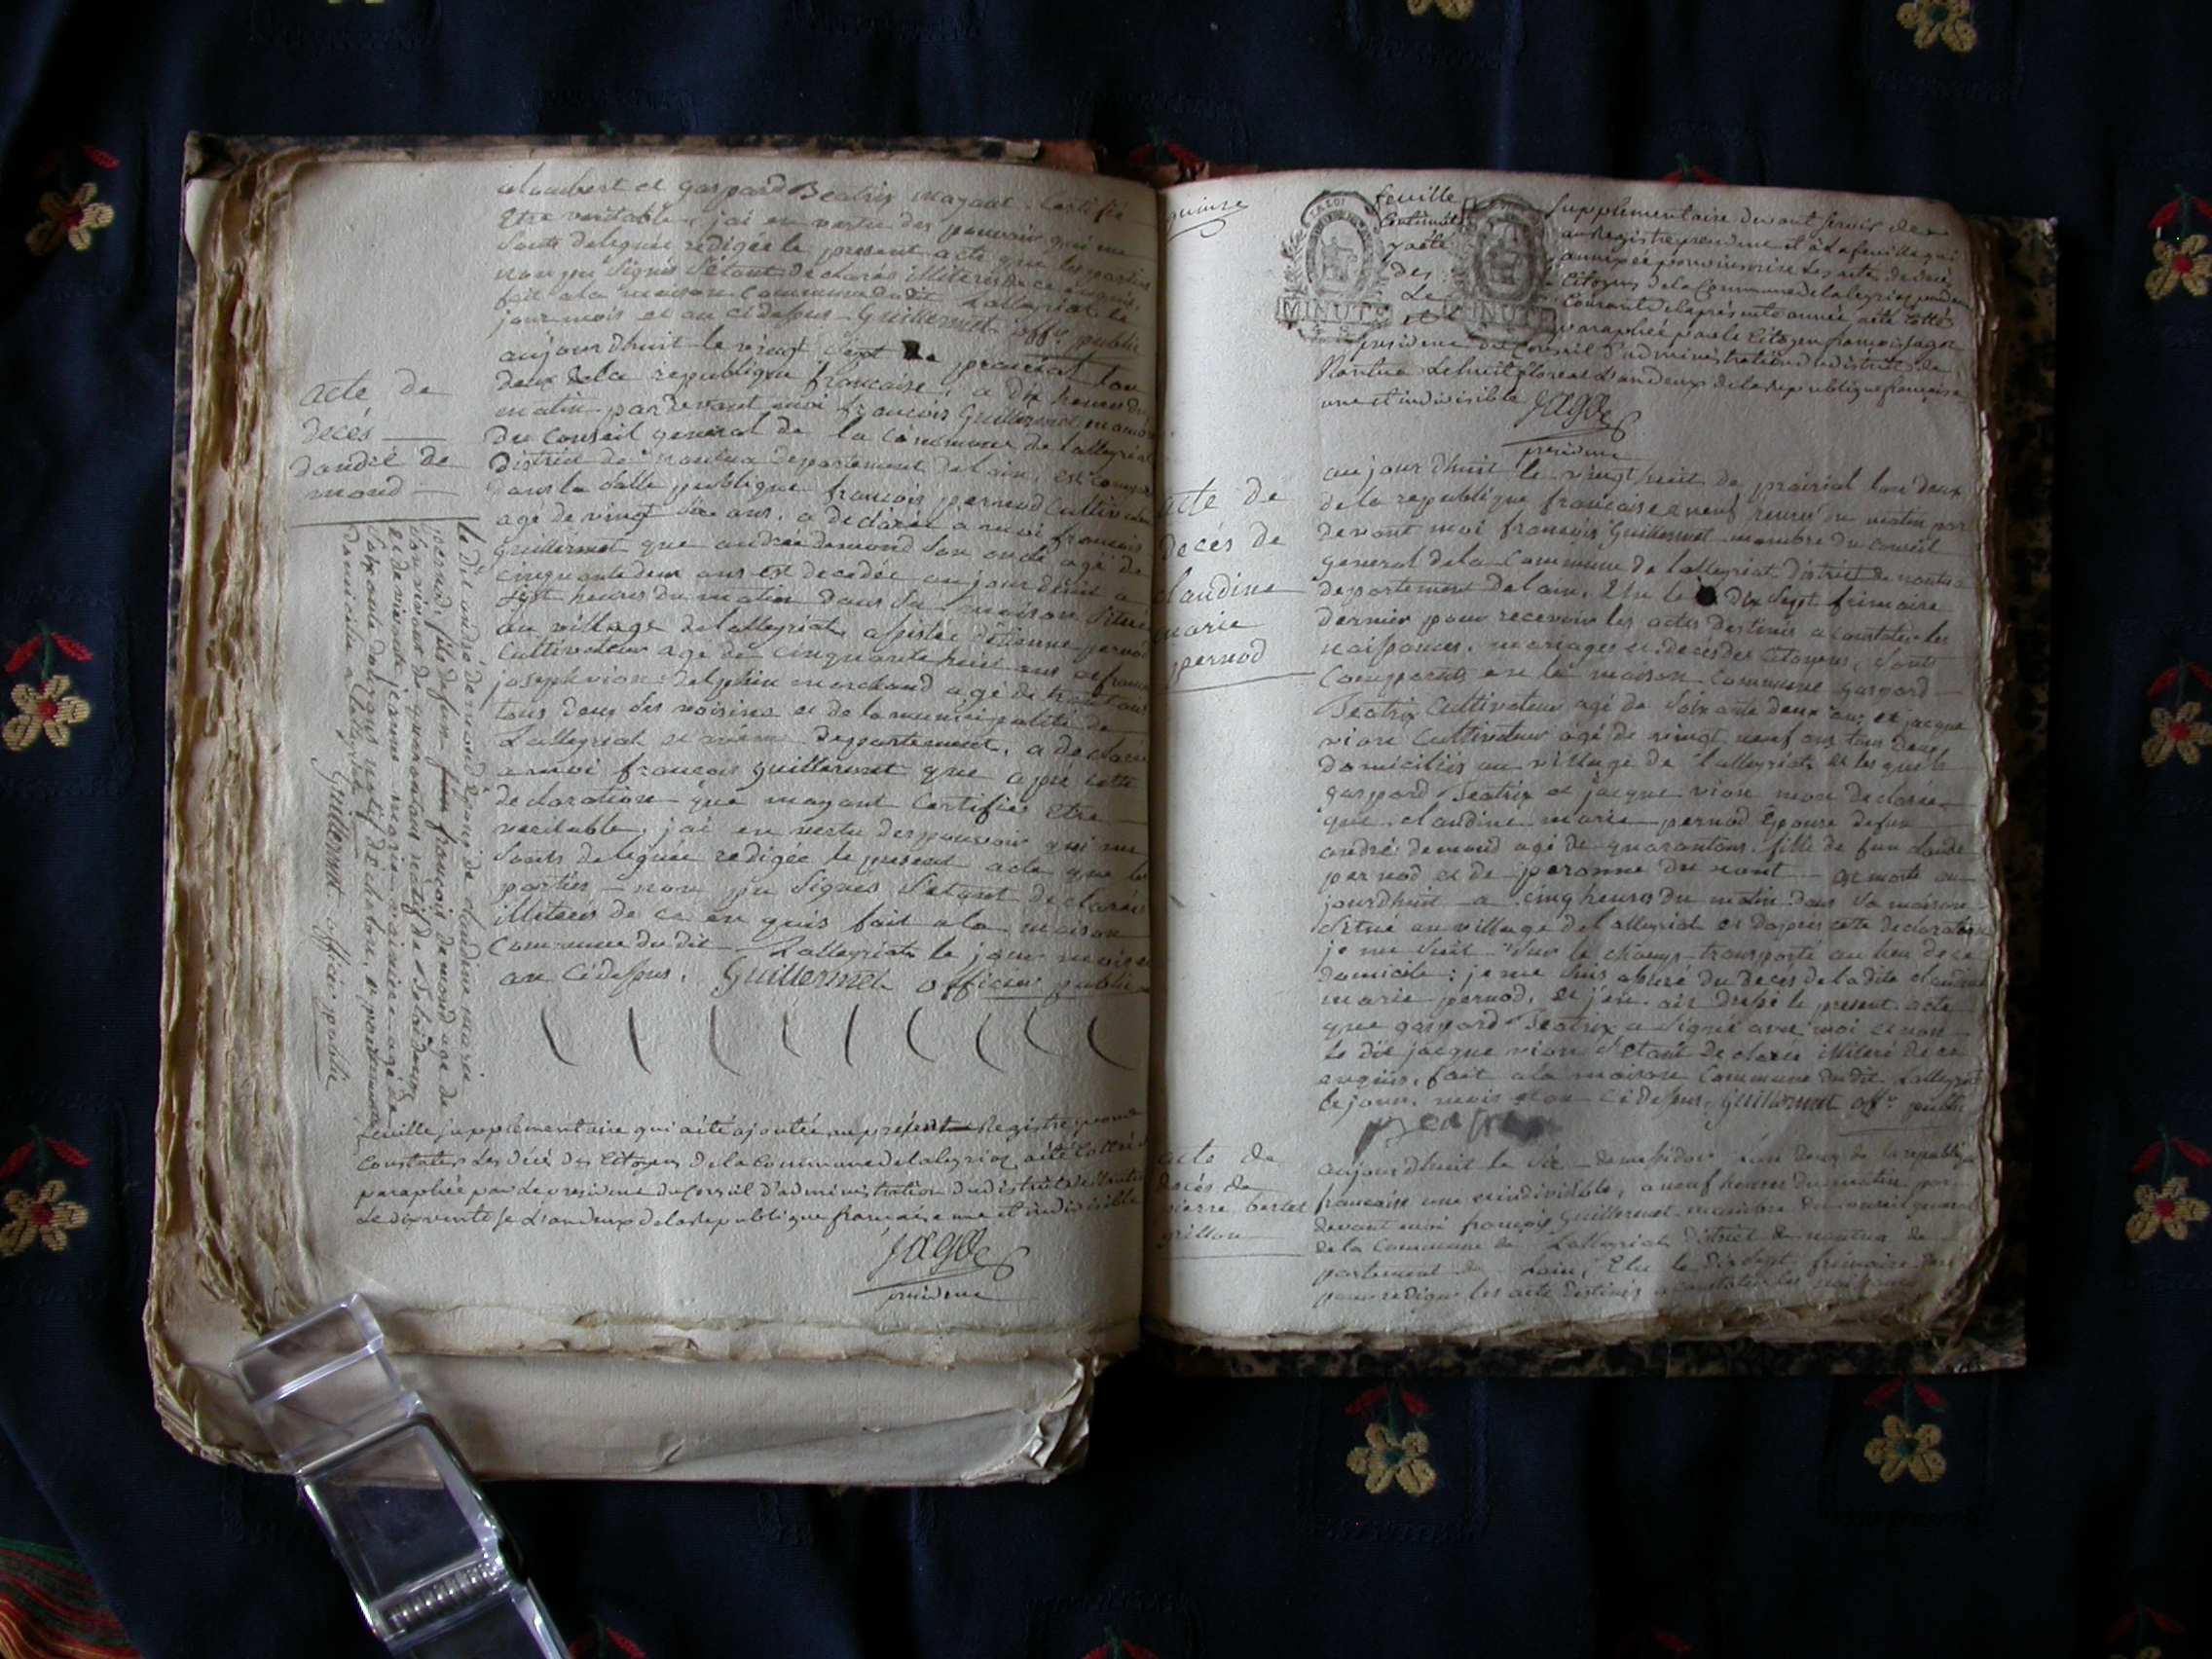 alombert et gaspard Beatrix mayant certifié
Etre veritable, j'ai en vertu des pouvoir qui me
sonts deleguée redigée le present acte que les parties
non pu signés s'étant declarés illiteres de ce enquis
fait a la maison commune dudit Lalleyriat le
jour mois et an ci dessus Guillermet offr. public
acte de
decés
dandré de
mond
aujourdhuit le vingt sept de prairial lan
deux de la republique francaise, a dix heures du
matin pardevant moi francois Guillermet membre
du conseil general de la commune de lalleyriat
district de nantua departement de lain, est comparu
dans la salle publique francois pernod cultivateur
agé de vingt six ans, a declarée a moi francois
guillermet que andré demond son oncle agé de
cinquante deux ans est decedée au jour dhuit a
sept heures du matin dans sa maison située
au village de lalleyriat, assistée détienne pernod
cultivateur agé de cinquante huit ans et francois
joseph vion delphin marchand agé de trente ans
tous deux ses voisins et de la municipalité de
Lalleyriat et même departement, a declarée
a moi francois guillermet que apre cette
declaration que mayant certifiés etre
veritable, j'ai en vertu des pouvoir qui me
sonts deleguée redigée le present acte que les
parties non pu signés s'etant declarés
illiterés de ce en quis fait a la maison
commune du dit Lalleyriat le jour mois et
an ci dessus. Guillermet officier public
le dit andré demond épous de claudine marie
pernod, fils de feu francois demond agé de
son vivant de quarantans natif de
et de vivante jeanne marie agé de
soixante dans natif de
domicilié a Lalleyriat
Guillermet officier public
feuille supplémentaire qui a été ajoutée au présent Registre pour
Constater Les décés des Citoyens de la Commune de laleyriaz a été Cottée
paraphée par Le président du Conseil d'administration du district de Nantua
Le dix ventose L'an deux de la Republique française une et indivisible
Jagot
président
quinze
feuille
Contenant
a été
des
Le
et
LA LOI
MINUTE
MINUTE
supplementaire devant servir de
au Registre
pour inscrire Les acte de décé
Citoyens de la Commune de laleyriaz pendant
Courant de la présente année a été Cotté
paraphée par le Citoyen françois Jagot
président du Conseil d'administration du district de
Nantua Le huit floreal L'an deux de la Republique française
une et indivisible Jagot
président
acte de
decés de
claudine
marie
pernod
aujourdhuit le vingt huit de prairial lan deux
de la republique francaise a neuf heures du matin par
devant moi francois Guillermet membre du conseil
general de la commune de lalleyriat district de nantua
departement de lain. Elu le dix sept frimaire
dernier pour recevoir les actes destinés a constater les
naissances, mariages et decés des citoyens, sonts
comparus en la maison commune gaspard
Beatrix cultivateur agé de soixante deux ans et jacque
vion cultivateur agé de vingt neuf ans tous deux
domiciliés au village de lalleyriat et les quels
gaspard Beatrix et jacque vion mon declarée
que claudine marie pernod Epouse defun
andré demond agé de quarantans, fille de feu claude
pernod et de peronne du mont est morte au
jourdhuit a cinq heures du matin dans sa maison
située au village de lalleyriat et dapres cette declaration
je me suit sur le champs transporté au lieu de ce
domicile; je me suis assuré du decés de la dite claudine
marie pernod, et j'en ait dressé le present acte
que gaspard Beatrix a signé avec moi et non
le dit jacque vion s'etant declaree illiteré de ce
enquis, fait a la maison commune du dit Lalleyriat
le jour, mois et an ci dessus, Guillermet offr. public
acte de
decés de
pierre
aujourdhuit le six de messidor lan deux de la republique
francaise une et indivisible, a neuf heures du matin par
devant moi françois Guillermet membre du conseil general
de la commune de Lalleyriat district de nantua de
partement de Lain, Elu le dix sept frimaire
pour rediger les acte destinés a constater les naissances